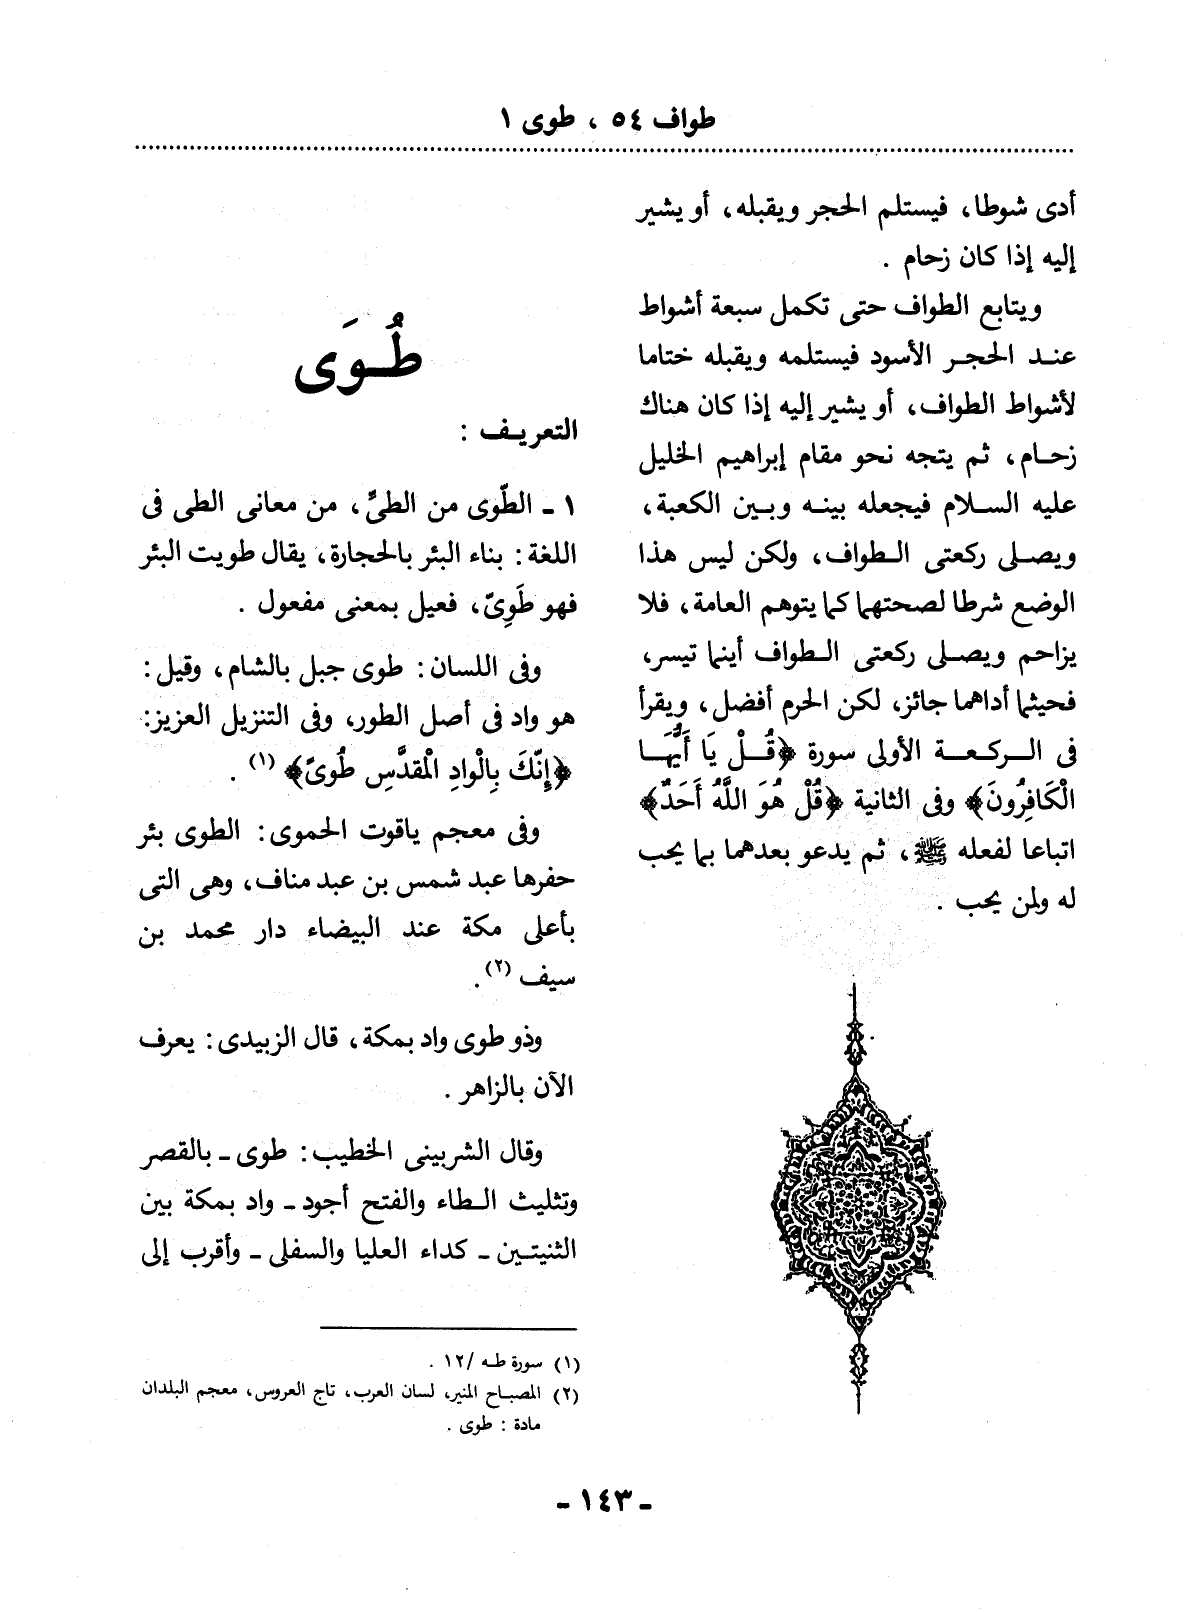 طواف ٥٤ ، طوى ١
أدى شوطا، فيستلم الحجر ويقبله، أو يشير
إليه إذا كان زحام .
ويتابع الطواف حتى تكمل سبعة أشواط
عنـد الحجـر الأسود فيستلمه ويقبله ختاما
لأشواط الطواف، أو يشير إليه إذا كان هناك
زحـام، ثم يتجه نحو مقام إبراهيم الخليل
عليه السـلام فيجعله بينـه وبـين الكعبة،
ويصلى ركعتى الـطواف، ولكن ليس هذا
الوضع شرطا لصحتهما كما يتوهم العامة، فلا
يزاحم ويصلى ركعتى الـطواف أينما تيسر،
فحيثما أداهما جائز، لكن الحرم أفضل، ويقرأ
فى الـركعـة الأولى سورة ﴿قُـلْ يَا أَيُّهَـا
الْكَافِرُونَ﴾ وفى الثانية ﴿قُلْ هُوَ اللَّهُ أَحَدٌ﴾
اتباعا لفعله ﷺ، ثم يدعو بعدهما بما يحب
له ولمن يحب .
طُـوَى
التعريـف :
١ ـ الطّوى من الطىّ، من معانى الطى فى
اللغة : بناء البئر بالحجارة، يقال طويت البئر
فهو طَوِىٌ، فعيل بمعنى مفعول .
وفى اللسان : طوى جبل بالشام، وقيل :
هو واد فى أصل الطور، وفى التنزيل العزيز:
﴿إِنّكَ بِالْوادِ الْمقدَّسِ طُوىً﴾ (١) .
وفى معجم ياقوت الحموى : الطوى بئر
حفرها عبد شمس بن عبد مناف، وهى التى
بأعلى مكة عند البيضاء دار محمد بن
سيف (٢).
وذو طوى واد بمكة، قال الزبيدى : يعرف
الآن بالزاهر .
وقال الشربينى الخطيب : طوى ـ بالقصر
وتثليث الـطاء والفتح أجود ـ واد بمكة بين
الثنيتـين ـ كداء العليا والسفلى ـ وأقرب إلى
(١) سورة طـه /١٢ .
(٢) المصبـاح المنير، لسان العرب، تاج العروس، معجم البلدان
مادة : طوى .
ـ ١٤٣ ـ